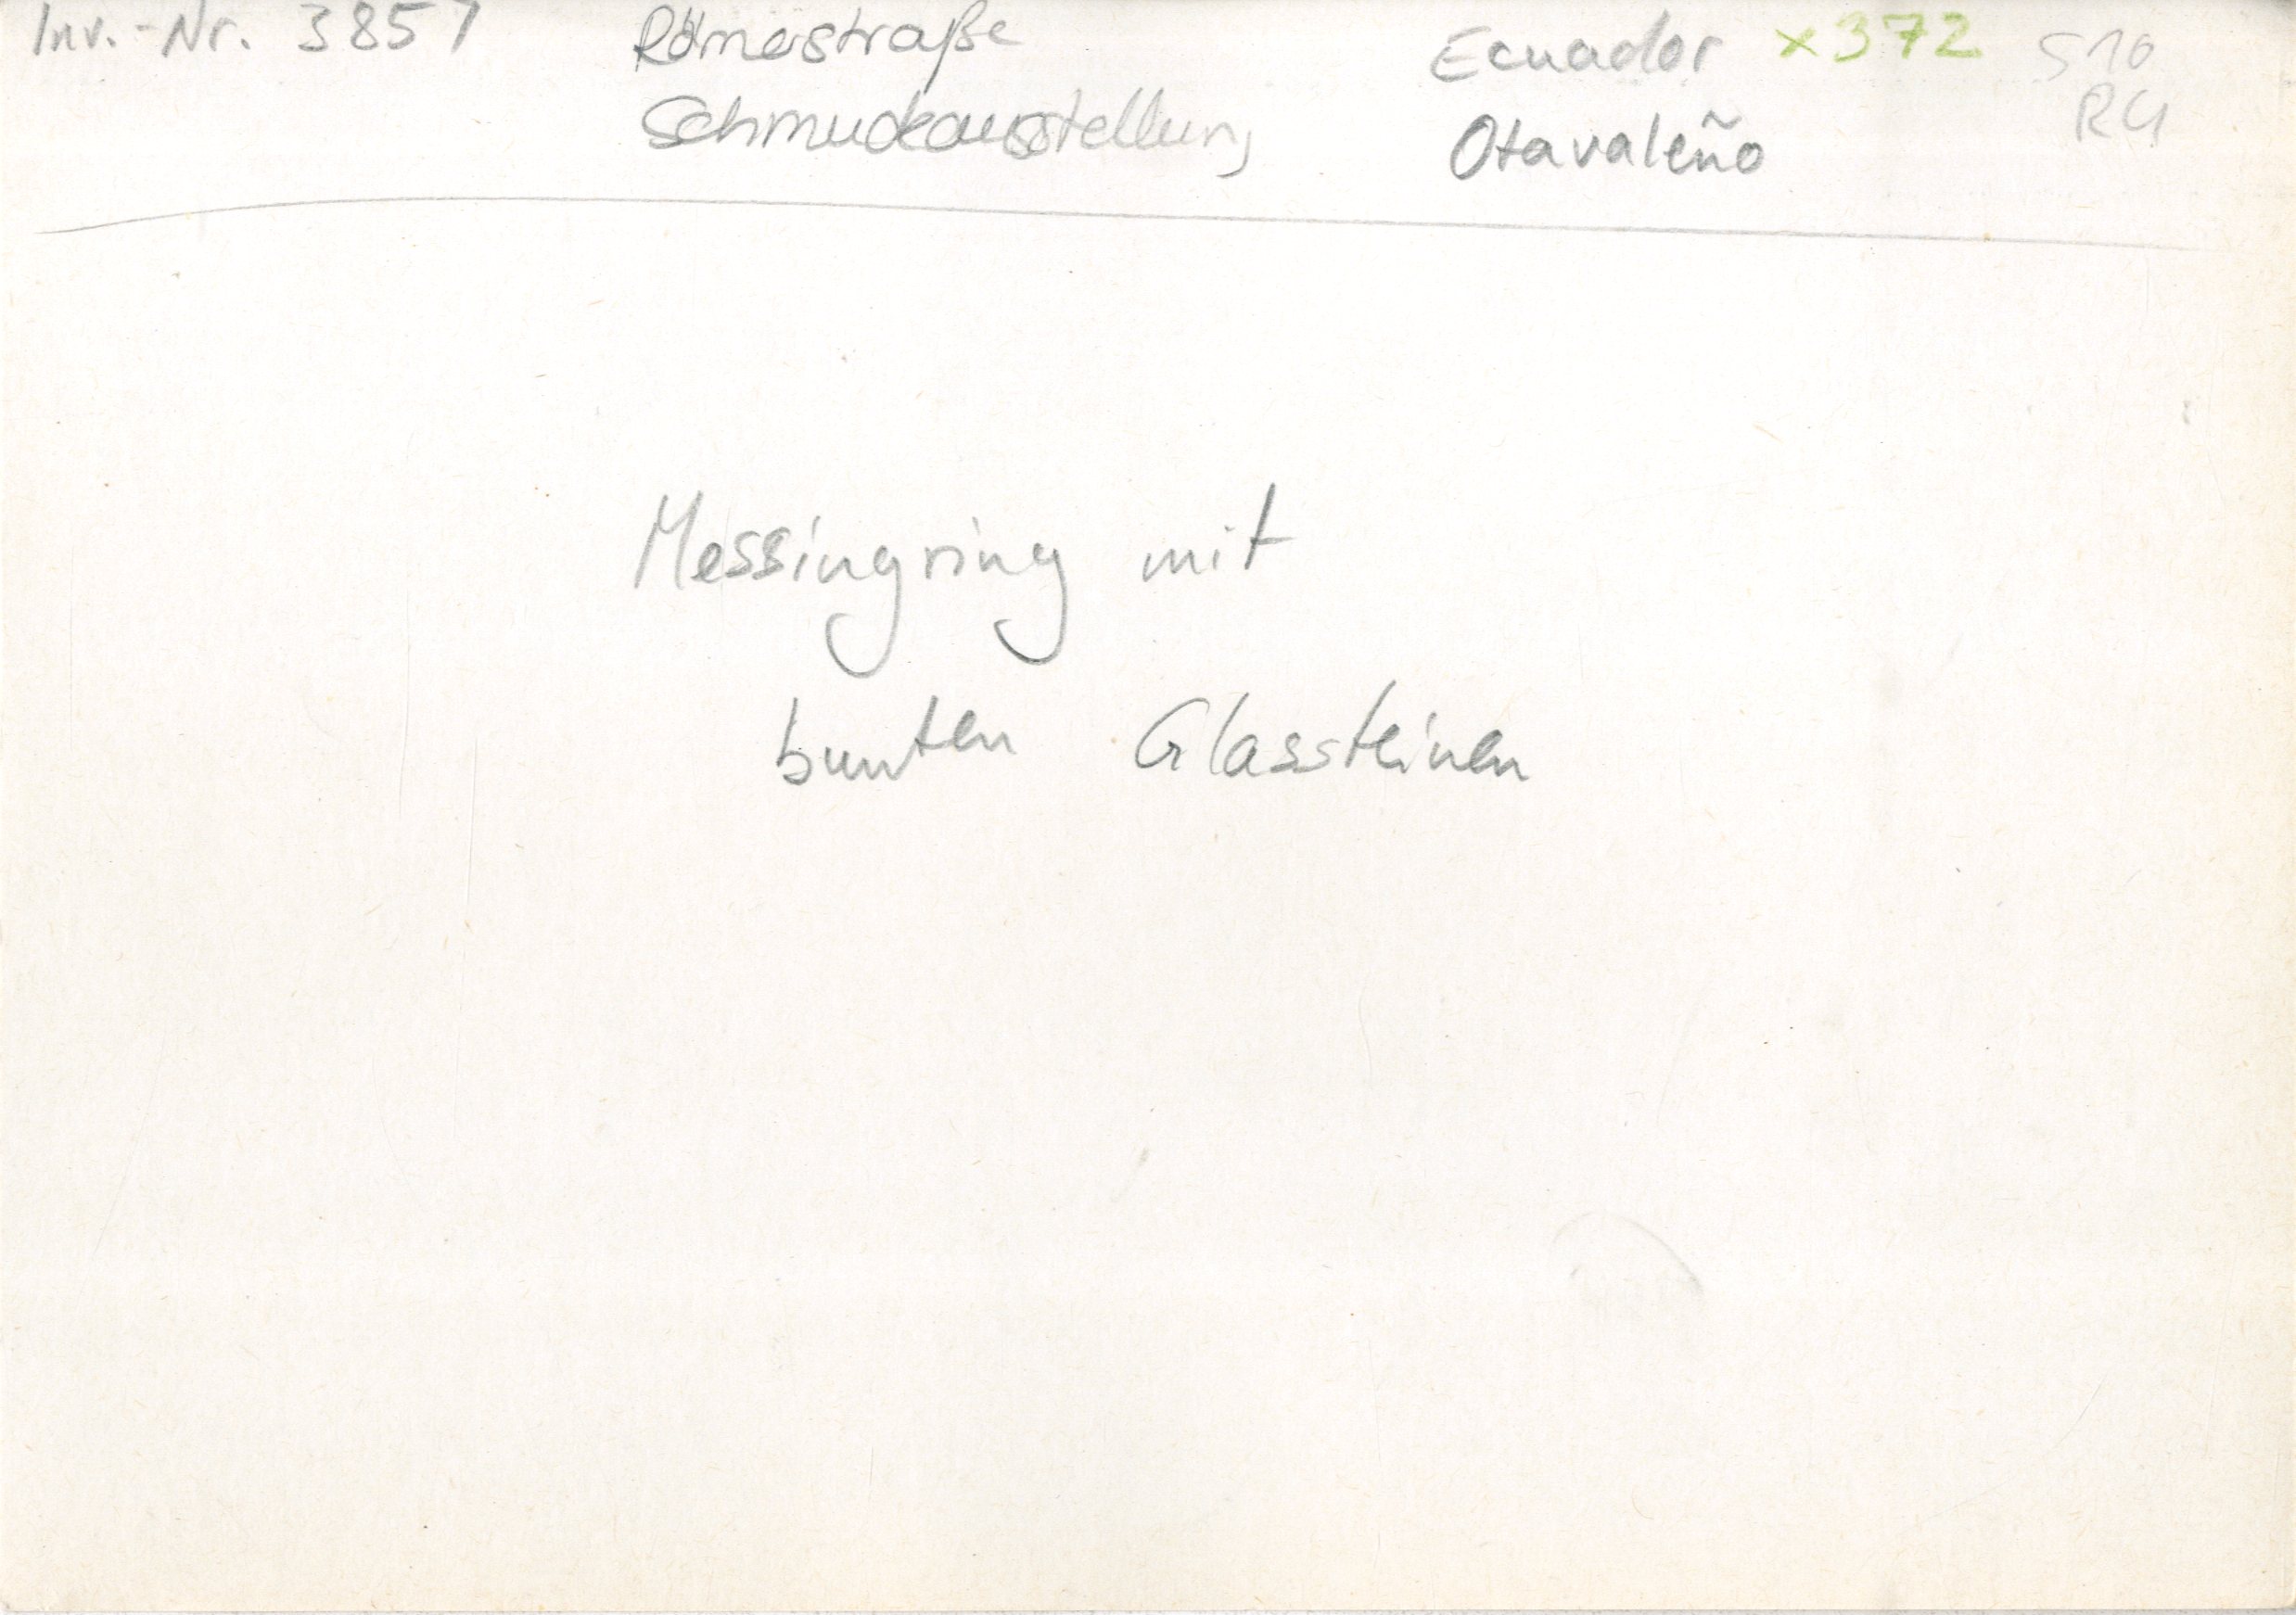 Inv.-Nr. 3857 Römerstraße Ecuador x372 S10
Schmuckausstellung Otavaleño R4
Messingring mit
bunten Glassteinen